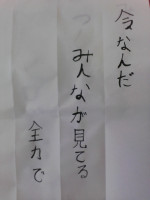 今なんだ
みんなが見てる
全力で